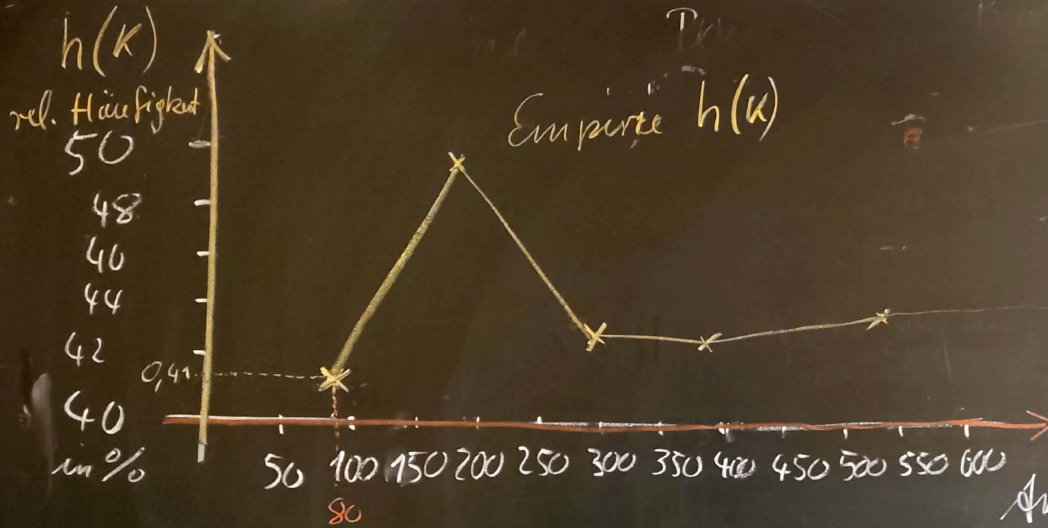 h(K)
rel. Häufigkeit
Empirie h(K)
50
48
46
44
42
0,41
40
in %
50 100 150 200 250 300 350 400 450 500 550 600
80